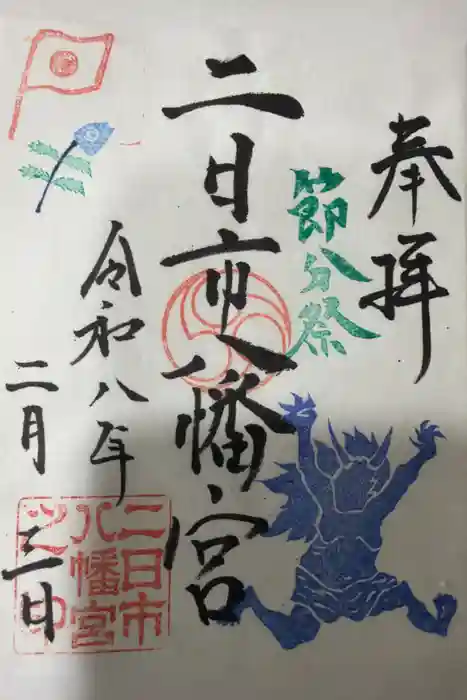 奉拝
節分祭
二日市八幡宮
令和八年
二月三日
二日市
八幡宮